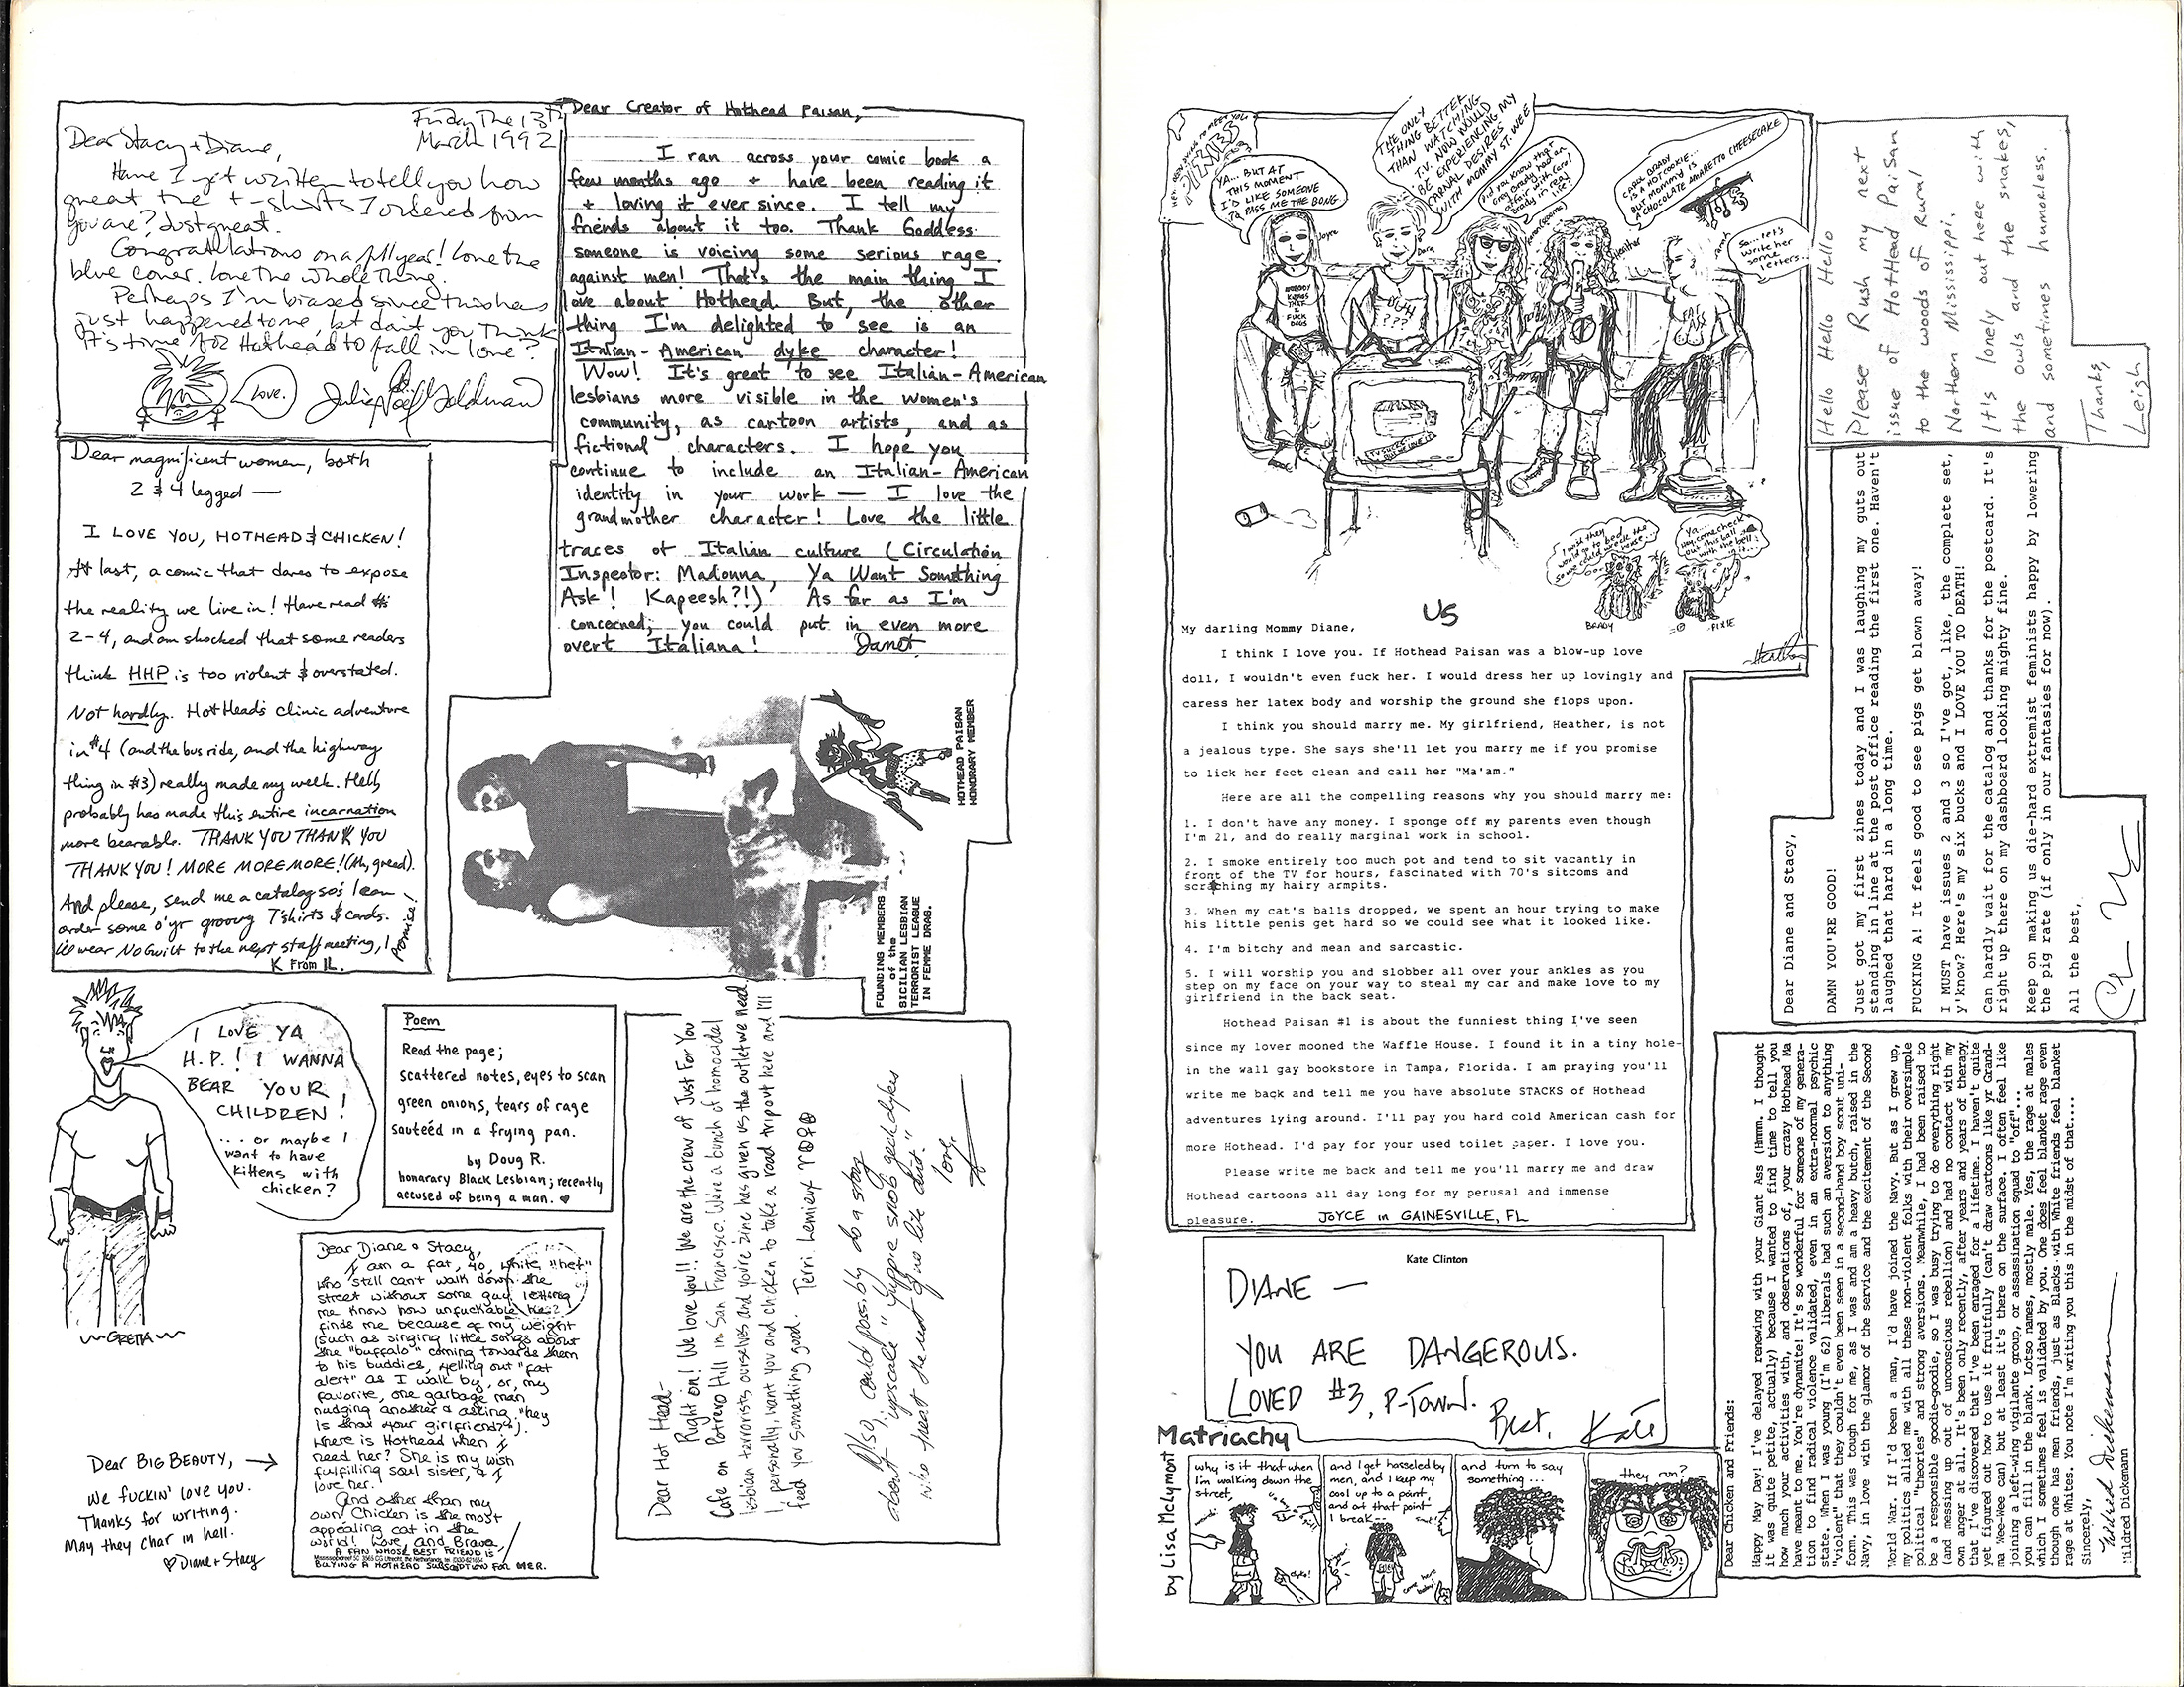 Friday The 13th
March 1992
Dear Stacy + Diane,
Have I yet written to tell you how
great the t-shirts I ordered from
you are? Just great.
Congratulations on a full year! Love the
blue cover. Love the whole thing.
Perhaps I'm biased since this has
just happened to me, but don't you think
it's time for Hothead to fall in love?
Love.
Dear Creator of Hothead Paisan,
I ran across your comic book a
few months ago + have been reading it
+ loving it ever since. I tell my
friends about it too. Thank Goddess
someone is voicing some serious rage
against men! That's the main thing I
love about Hothead. But, the other
thing I'm delighted to see is an
Italian-American dyke character!
Wow! It's great to see Italian-American
lesbians more visible in the women's
community, as cartoon artists, and as
fictional characters. I hope you
continue to include an Italian-American
identity in your work — I love the
grandmother character! Love the little
traces of Italian culture (Circulation
Inspector: Madonna, Ya Want Something
Ask! Kapeesh?!) As far as I'm
concerned, you could put in even more
overt Italiana! Janet
Dear magnificent women, both
2 & 4 legged —
I LOVE YOU, HOTHEAD & CHICKEN!
At last, a comic that dares to expose
the reality we live in! Have read #s
2-4, and am shocked that some readers
think HHP is too violent & overstated.
Not hardly. HotHead's clinic adventure
in #4 (and the bus ride, and the highway
thing in #3) really made my week. Hell,
probably has made this entire incarnation
more bearable. THANK YOU THANK YOU
THANK YOU! MORE MORE MORE! (Ah, greed).
And please, send me a catalog so's I can
order some o' yr groovy T'shirts & cards.
I'll wear No Guilt to the next staff meeting, I promise!
K From IL.
HOTHEAD PAISAN
HONORARY MEMBER
FOUNDING MEMBERS
of the
SICILIAN LESBIAN
TERRORIST LEAGUE
IN FEMME DRAG.
I LOVE YA
H.P.! I WANNA
BEAR YOUR
CHILDREN!
... or maybe I
want to have
kittens with
chicken?
GRETTA
Poem
Read the page;
scattered notes, eyes to scan
green onions, tears of rage
sauteéd in a frying pan.
by Doug R.
honarary Black Lesbian; recently
accused of being a man. ♥
Dear Diane & Stacy,
I am a fat, 40, white "het"
who still can't walk down the
street without some guy letting
me know how unfuckable he
finds me because of my weight
(such as singing little songs about
the "buffalo" coming towards them
to his buddies, yelling out "fat
alert" as I walk by, or, my
favorite, one garbage man
nudging another & asking, "hey
is that your girlfriend?").
Where is Hothead when I
need her? She is my wish
fulfilling soul sister, & I
love her.
And other than my
own Chicken is the most
appealing cat in the
world! Love, and Brava,
A FAN WHOSE BEST FRIEND IS
BUYING A HOTHEAD SUBSCRIPTION FOR HER.
Dear BIG BEAUTY, →
We fuckin' love you.
Thanks for writing.
May they char in hell.
♡ Diane + Stacy
Dear Hot Head-
Right on! We love you!! We are the crew of Just For You
Cafe on Potrero Hill in San Francisco. We're a bunch of homocidal
lesbian terrorists ourselves and you're zine has given us the outlet we need.
I personally, want you and chicken to take a road trip out here and I'll
feed you something good. Terri Lemieux
Also, could you possibly do a story
about "upscale" yuppie snob geek dykes
who treat the rest of us like dirt."
love,
HEY, BEEN DYING TO MEET YOU
YA... BUT AT
THIS MOMENT
I'D LIKE SOMEONE
TO PASS ME THE BONG.
THE ONLY
THING BETTER
THAN WATCHING
T.V. NOW WOULD
BE EXPERIENCING MY
CARNAL DESIRES
WITH MOMMY ST. WEE
Did you know that
Greg Brady had an
affair with Carol
Brady in real
life?
CAROL BRADY
IS A HOT COOKIE...
BUT MOMMY IS
A CHOCOLATE AMARETTO CHEESECAKE
So... let's
write her
some
letters..
Joyce
Dara
Heather
NOBODY
KNOWS
THAT
I
FUCK
DOGS
UGH
???
Ya...
hey, come check
out this ball
with the bell
in it...
BRADY
PIXIE
US
My darling Mommy Diane,
I think I love you. If Hothead Paisan was a blow-up love
doll, I wouldn't even fuck her. I would dress her up lovingly and
caress her latex body and worship the ground she flops upon.
I think you should marry me. My girlfriend, Heather, is not
a jealous type. She says she'll let you marry me if you promise
to lick her feet clean and call her "Ma'am."
Here are all the compelling reasons why you should marry me:
1. I don't have any money. I sponge off my parents even though
I'm 21, and do really marginal work in school.
2. I smoke entirely too much pot and tend to sit vacantly in
front of the TV for hours, fascinated with 70's sitcoms and
scratching my hairy armpits.
3. When my cat's balls dropped, we spent an hour trying to make
his little penis get hard so we could see what it looked like.
4. I'm bitchy and mean and sarcastic.
5. I will worship you and slobber all over your ankles as you
step on my face on your way to steal my car and make love to my
girlfriend in the back seat.
Hothead Paisan #1 is about the funniest thing I've seen
since my lover mooned the Waffle House. I found it in a tiny hole-
in the wall gay bookstore in Tampa, Florida. I am praying you'll
write me back and tell me you have absolute STACKS of Hothead
adventures lying around. I'll pay you hard cold American cash for
more Hothead. I'd pay for your used toilet paper. I love you.
Please write me back and tell me you'll marry me and draw
Hothead cartoons all day long for my perusal and immense
pleasure. JOYCE in GAINESVILLE, FL
Hello Hello Hello
Please Rush my next
issue of HotHead PaiSan
to the woods of Rural
Northern Mississippi.
It's lonely out here with
the owls and the snakes,
and sometimes humorless.
Thanks,
Leigh
Dear Diane and Stacy,
DAMN YOU'RE GOOD!
Just got my first zines today and I was laughing my guts out
standing in line at the post office reading the first one. Haven't
laughed that hard in a long time.
FUCKING A! It feels good to see pigs get blown away!
I MUST have issues 2 and 3 so I've got, like, the complete set,
y'know? Here's my six bucks and I LOVE YOU TO DEATH!
Can hardly wait for the catalog and thanks for the postcard. It's
right up there on my dashboard looking mighty fine.
Keep on making us die-hard extremist feminists happy by lowering
the pig rate (if only in our fantasies for now).
All the best,
Kate Clinton
DIANE —
YOU ARE DANGEROUS.
LOVED #3, P-Town.
Best, Kate
Matriachy
by Lisa Melymont
why is it that when
I'm walking down the
street,
and I get hasseled by
men, and I keep my
cool up to a point
and at that point
I break...
come here
baby!
and turn to say
something...
they run?
Dear Chicken and Friends:
Happy May Day! I've delayed renewing with your Giant Ass (Hmmm. I thought
it was quite petite, actually) because I wanted to find time to tell you
how much your activities with, and observations of, your crazy Hothead Ma
have meant to me. You're dynamite! It's so wonderful for someone of my genera-
tion to find radical violence validated, even in an extra-normal psychic
state. When I was young (I'm 62) liberals had such an aversion to anything
"violent" that they couldn't even been seen in a second-hand boy scout uni-
form. This was tough for me, as I was and am a heavy butch, raised in the
Navy, in love with the glamor of the service and the excitement of the Second
World War. If I'd been a man, I'd have joined the Navy. But as I grew up,
my politics allied me with all these non-violent folks with their oversimple
political "theories" and strong aversions. Meanwhile, I had been raised to
be a responsible goodie-goodie, so I was busy trying to do everything right
(and messing up out of unconscious rebellion) and had no contact with my
own anger at all. It's been only recently, after years and years of therapy,
that I've discovered that I've been enraged for a lifetime. I haven't quite
yet figured out how to use it fruitfully (can't draw cartoons like yr Grand-
ma Wee-Wee can) but at least it's there on the surface. I often feel like
joining a left-wing vigilante group, or assassination squad to "off"...
you can fill in the blank. Lotso names, mostly male. Yes, the rage at males
which I sometimes feel is validated by you. One does feel blanket rage even
though one has men friends, just as Blacks with White friends feel blanket
rage at Whites. You note I'm writing you this in the midst of that....
Sincerely,
Mildred Dickemann
Mildred Dickemann